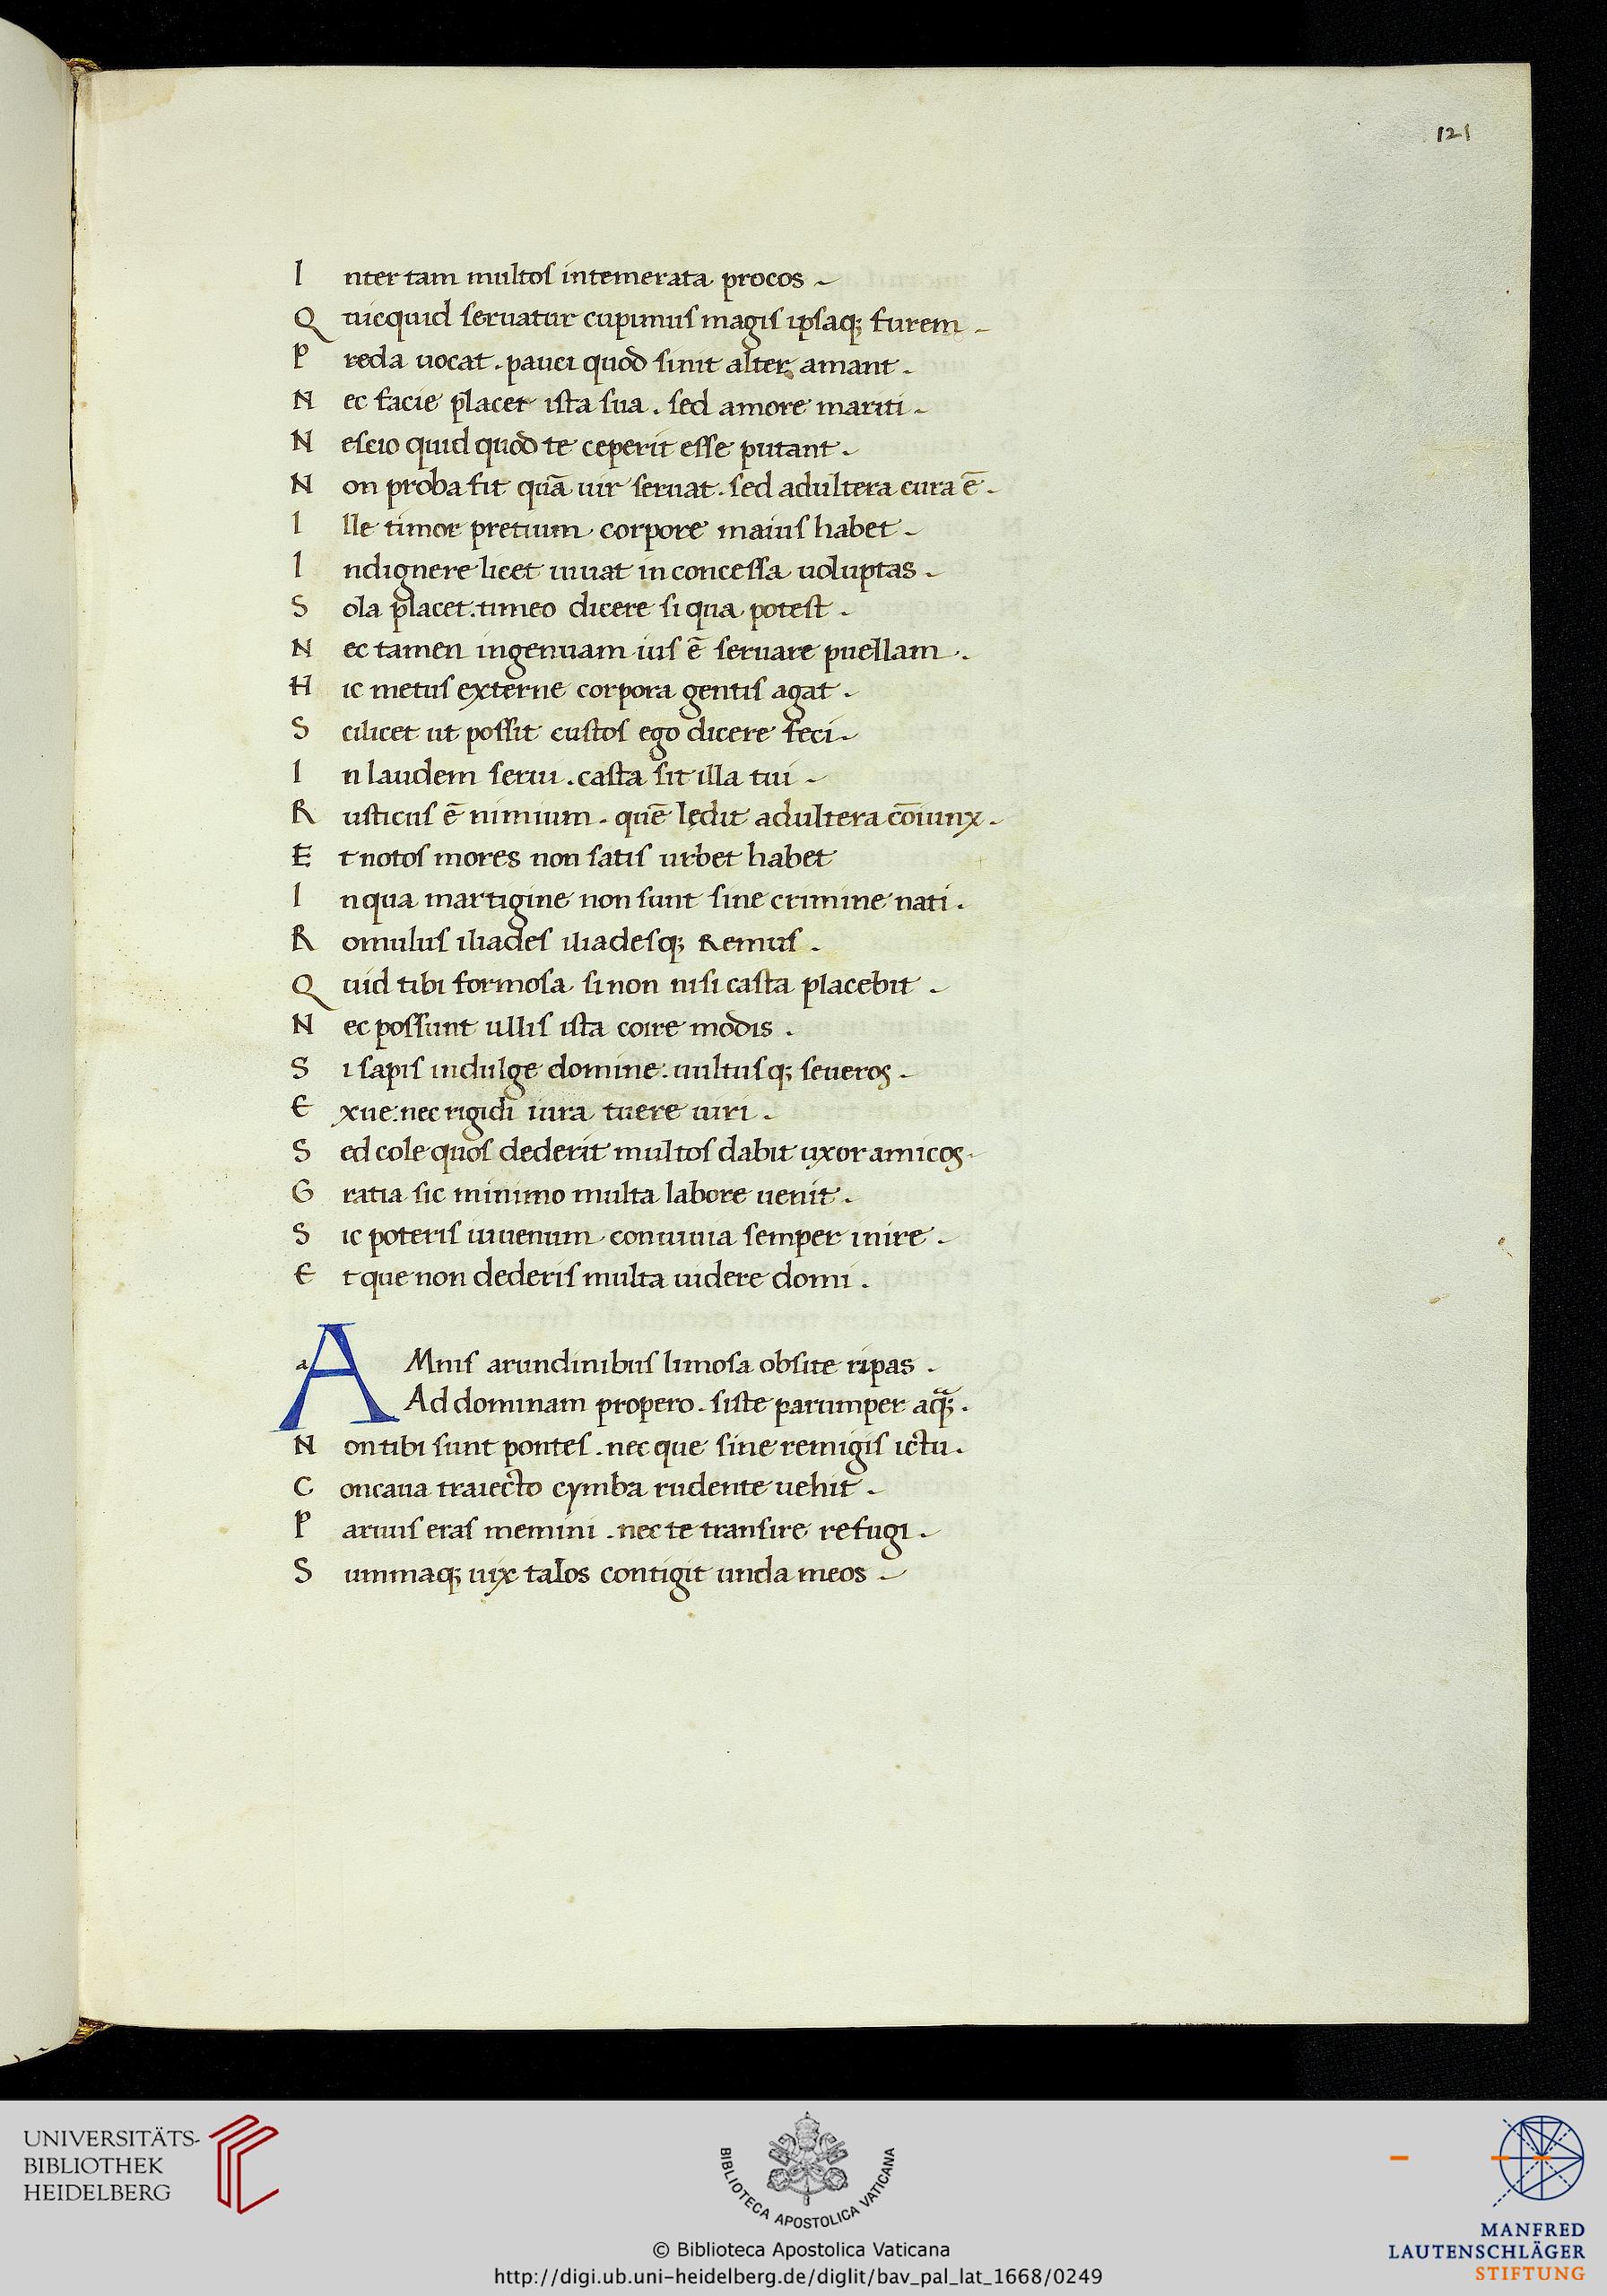 121
Inter tam multos intemerata procos.
Quicquid seruatur cupimus magis ipsaq; furem.
Preda uocat. pauci quod sinit alter amant.
Nec facie placet ista sua. sed amore mariti.
Nescio quid quod te ceperit esse putant.
Non proba fit quā uir seruat. sed adultera cura ē.
Ille timor pretium corpore maius habet.
Indignere licet iuuat inconcessa uoluptas.
Sola placet. timeo dicere si qua potest.
Nec tamen ingenuam ius ē seruare puellam.
Hic metus externe corpora gentis agat.
Scilicet ut possit custos ego dicere feci.
In laudem serui. casta sit illa tui.
Rusticus ē nimium. quē lędit adultera cōiunx.
Et notos mores non satis urbet habet
In qua martigine non sunt sine crimine nati.
Romulus iliades iliadesq; Remus.
Quid tibi formosa si non nisi casta placebit.
Nec possunt ullis ista coire modis.
Si sapis indulge domine. uultusq; seueros.
Exue. nec rigidi iura tuere uiri.
Sed cole quos dederit multos dabit uxor amicos.
Gratia sic minimo multa labore uenit.
Sic poteris iuuenum conuiuia semper inire.
Et que non dederis multa uidere domi.
a AMnis arundinibus limosa obsite ripas.
Ad dominam propero. siste parumper aq̄;.
Non tibi sunt pontes. nec que sine remigis ictu.
Concaua traiecto cymba rudente uehit.
Paruus eras memini. nec te transire refugi.
Summaq; uix talos contigit unda meos.
UNIVERSITÄTS-
BIBLIOTHEK
HEIDELBERG
BIBLIOTECA APOSTOLICA VATICANA
© Biblioteca Apostolica Vaticana
http://digi.ub.uni-heidelberg.de/diglit/bav_pal_lat_1668/0249
MANFRED
LAUTENSCHLÄGER
STIFTUNG